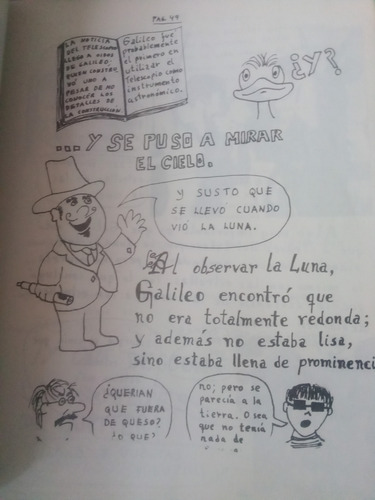 PAG 49
LA NOTICIA
DEL TELESCOPIO
LLEGO A OIDOS
DE GALILEO,
QUIEN CONSTRU
YÓ UNO A
PESAR DE NO
CONOCER LOS
DETALLES DE
LA CONSTRUCCION
Galileo fue
probablemente
el primero en
utilizar el
Telescopio como
instrumento
astronómico.
¿Y?
... Y SE PUSO A MIRAR
EL CIELO.
Y SUSTO QUE
SE LLEVO CUANDO
VIO LA LUNA.
Al observar la Luna,
Galileo encontró que
no era totalmente redonda;
y además no estaba lisa,
sino estaba llena de prominenci
¿QUERIAN
QUE FUERA
DE QUESO?
¿O QUE?
no; pero se
parecía a la
tierra. O sea
que no tenía
nada de